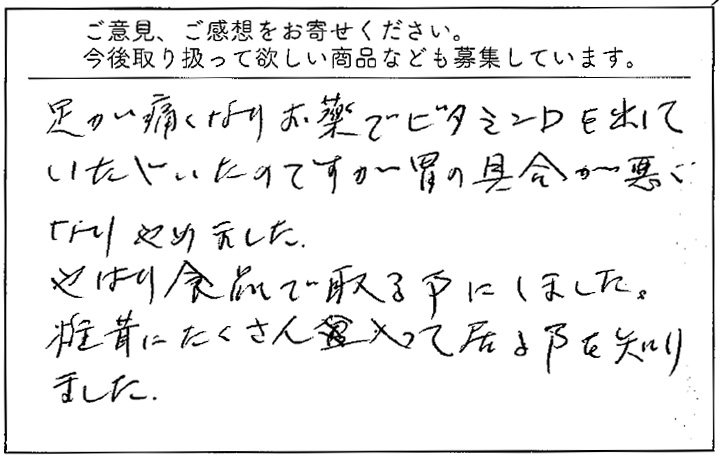 ご意見、ご感想をお寄せください。
今後取り扱って欲しい商品なども募集しています。
足が痛くなりお薬でビタミンDを出して
いただいたのですが胃の具合が悪く
なりやめました。
やはり食品で取る事にしました。
椎茸にたくさん入って居る事を知り
ました。